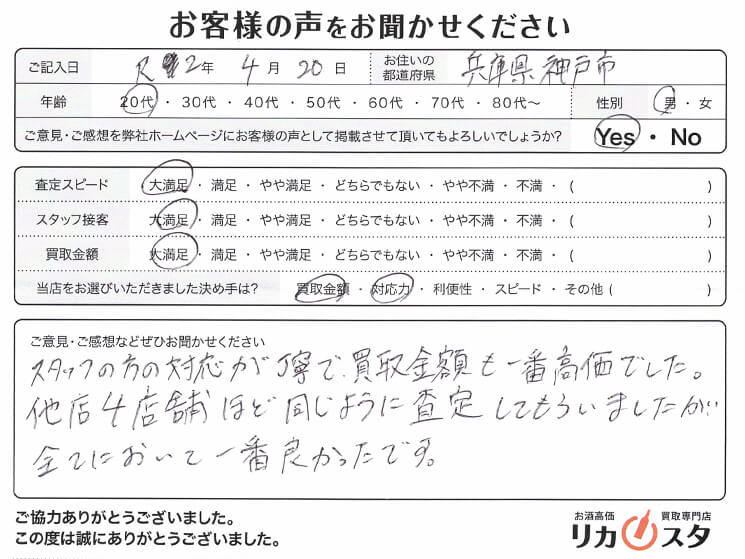 お客様の声をお聞かせください
ご記入日 R 2年 4月 20日 お住いの都道府県 兵庫県神戸市
年齢 20代・30代・40代・50代・60代・70代・80代〜 性別 男・女
ご意見・ご感想を弊社ホームページにお客様の声として掲載させて頂いてもよろしいでしょうか? Yes・No
査定スピード 大満足・満足・やや満足・どちらでもない・やや不満・不満・( )
スタッフ接客 大満足・満足・やや満足・どちらでもない・やや不満・不満・( )
買取金額 大満足・満足・やや満足・どちらでもない・やや不満・不満・( )
当店をお選びいただきました決め手は? 買取金額・対応力・利便性・スピード・その他( )
ご意見・ご感想などぜひお聞かせください
スタッフの方の対応が丁寧で、買取金額も一番高価でした。
他店4店舗ほど同じように査定してもらいましたが
全てにおいて一番良かったです。
ご協力ありがとうございました。
この度は誠にありがとうございました。
お酒高価 買取専門店
リカスタ